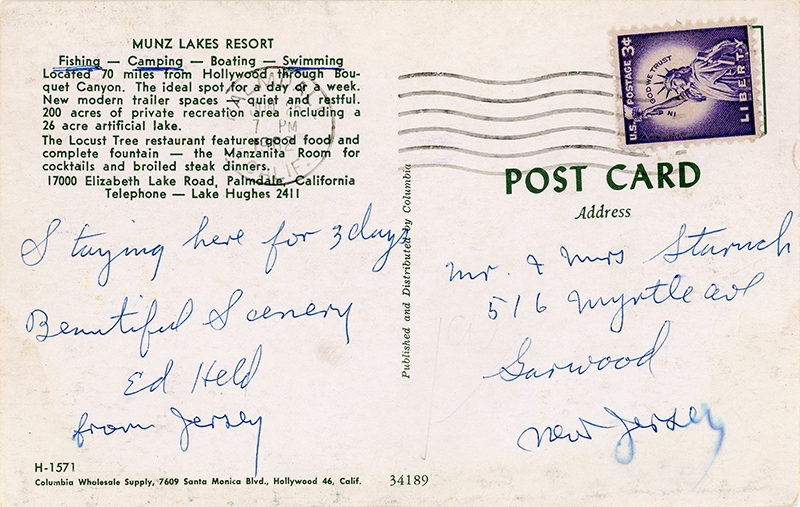 MUNZ LAKES RESORT
Fishing — Camping — Boating — Swimming
Located 70 miles from Hollywood through Bou-
quet Canyon. The ideal spot for a day or a week.
New modern trailer spaces — quiet and restful.
200 acres of private recreation area including a
26 acre artificial lake.
The Locust Tree restaurant features good food and
complete fountain — the Manzanita Room for
cocktails and broiled steak dinners.
17000 Elizabeth Lake Road, Palmdale, California
Telephone — Lake Hughes 2411
Staying here for 3 days
Beautiful Scenery
Ed Held
from Jersey
H-1571
Columbia Wholesale Supply, 7609 Santa Monica Blvd., Hollywood 46, Calif.
34189
Published and Distributed by Columbia
7 PM
CALIF.
U.S. POSTAGE 3¢
IN GOD WE TRUST
LIBERTY
POST CARD
Address
Mr. & Mrs Staruch
516 Myrtle ave
Garwood
New Jersey